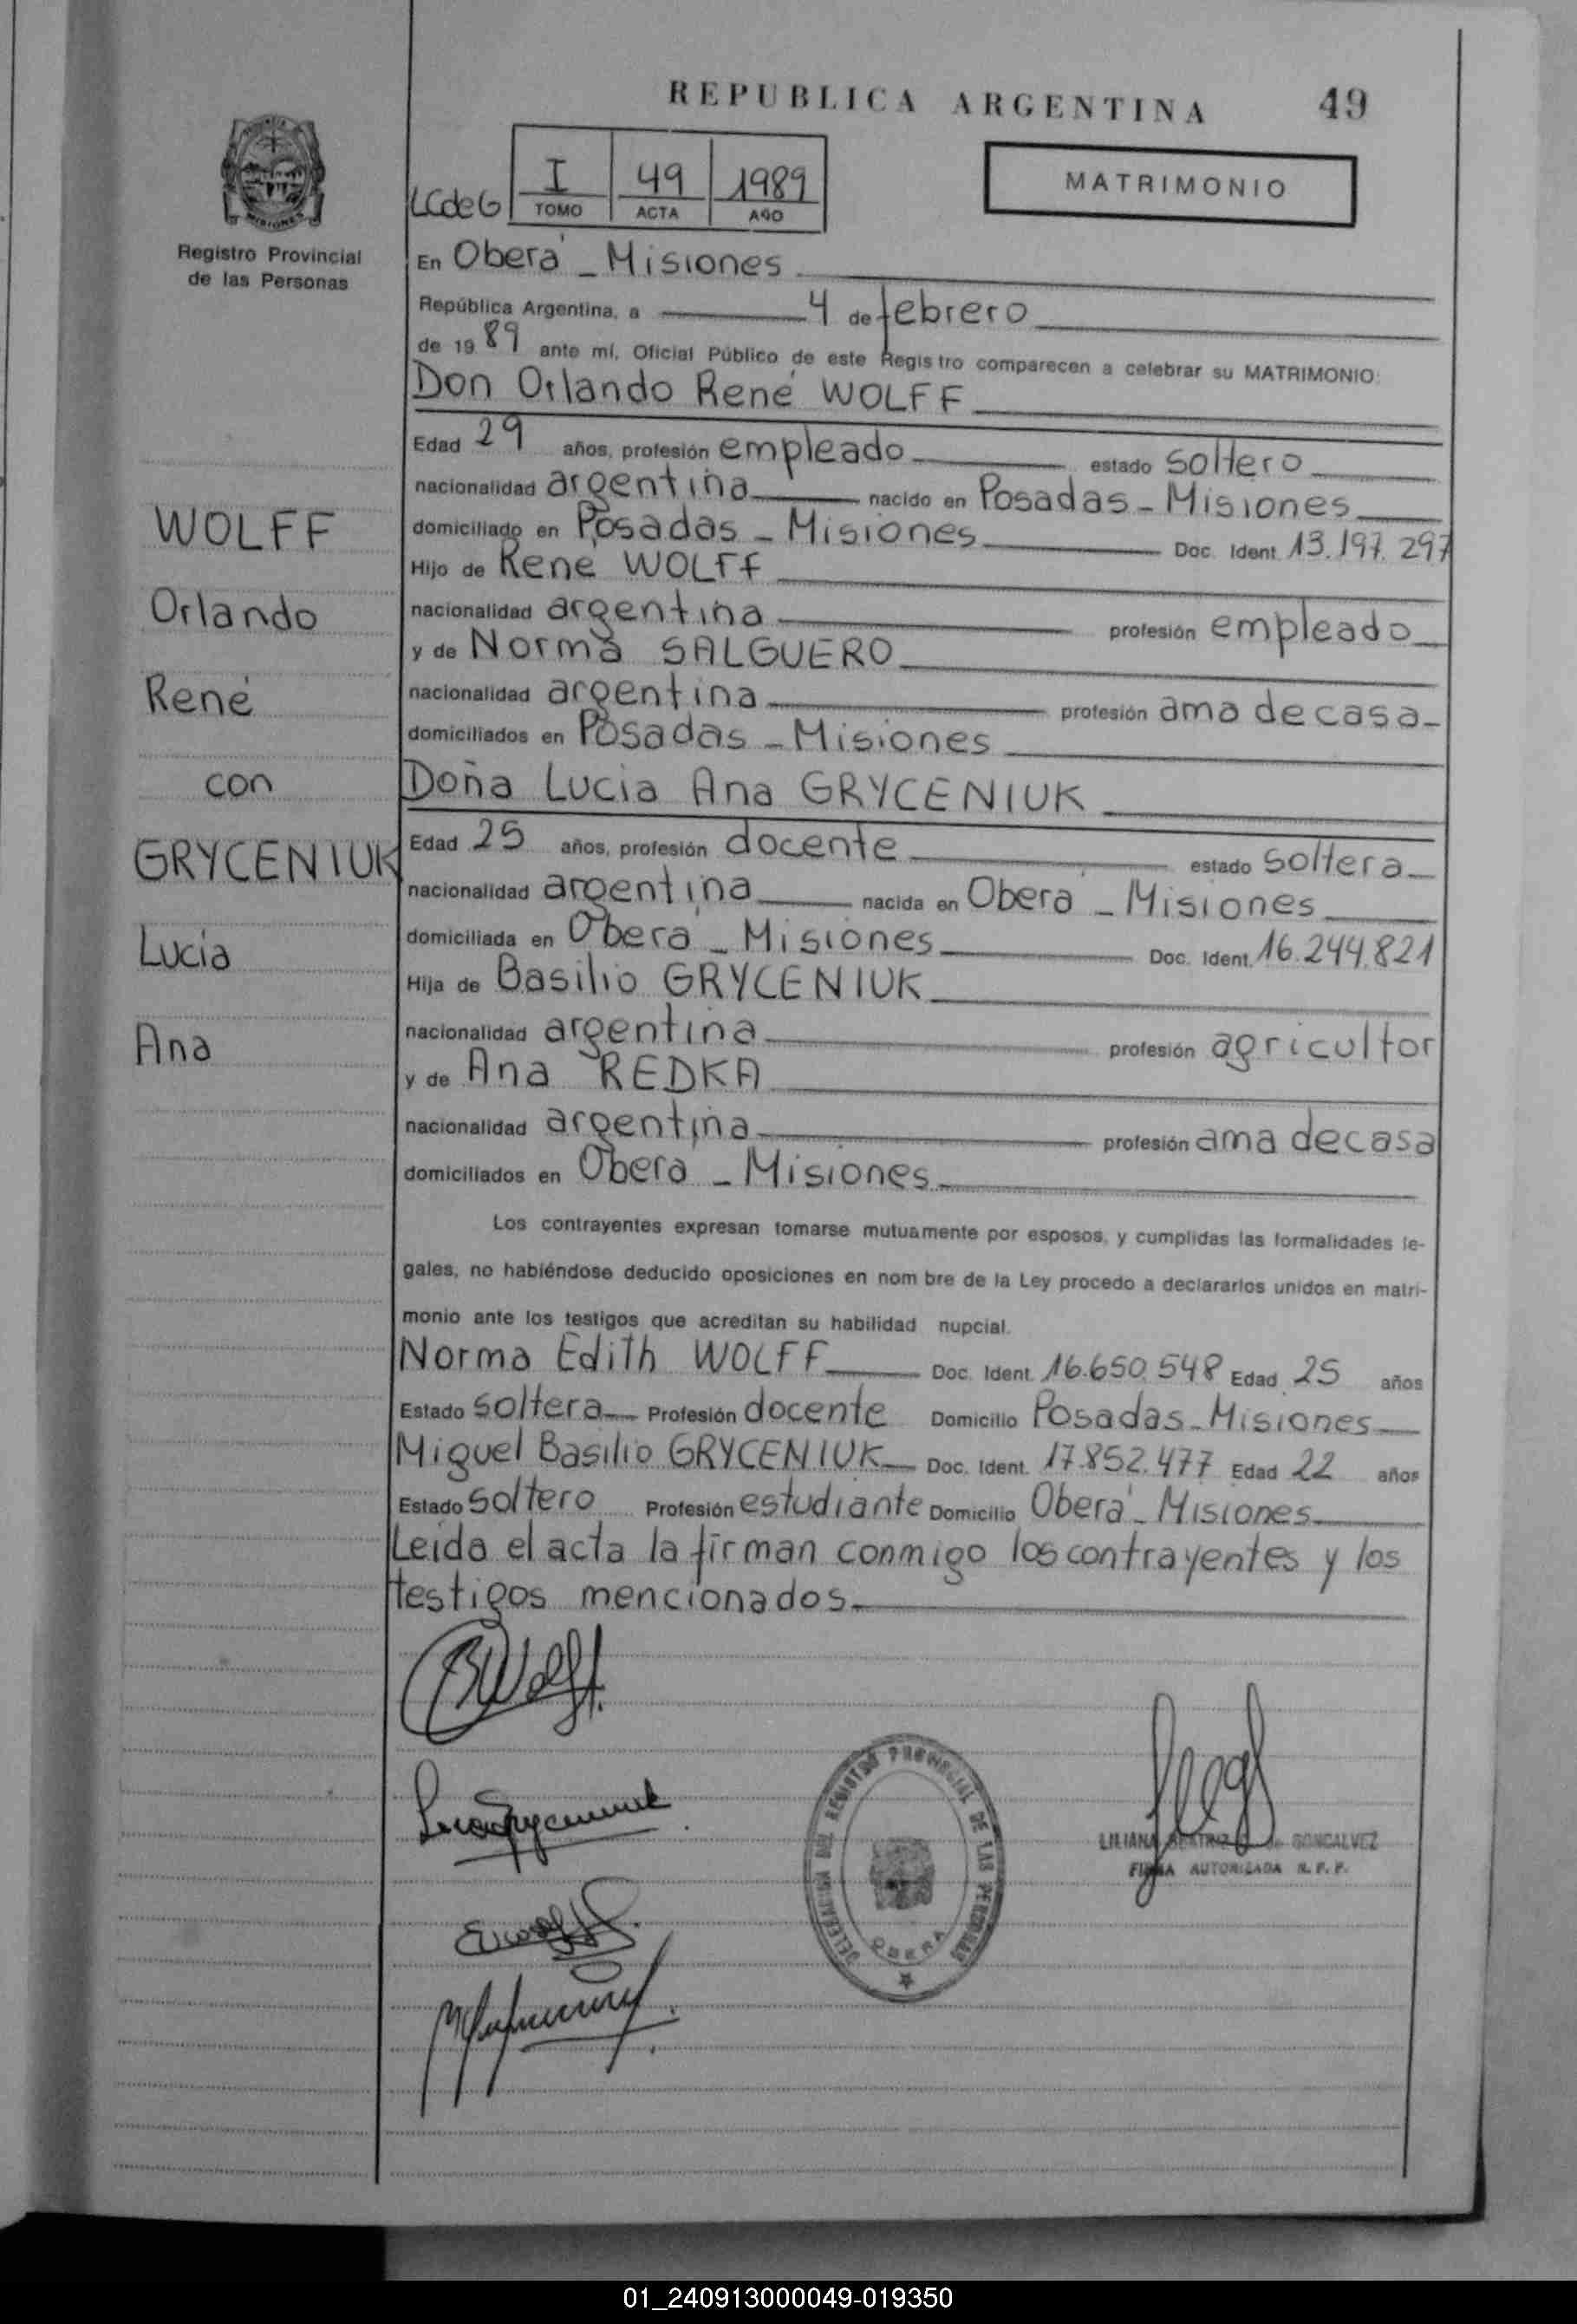 REPUBLICA ARGENTINA 49
MISIONES
Registro Provincial
de las Personas
LCdeG I 49 1989
TOMO ACTA AÑO
MATRIMONIO
En Oberá - Misiones
República Argentina, a 4 de febrero
de 1989 ante mí, Oficial Público de este Registro comparecen a celebrar su MATRIMONIO:
Don Orlando René WOLFF
Edad 29 años, profesión empleado estado soltero
nacionalidad argentina nacido en Posadas - Misiones
domiciliado en Posadas - Misiones Doc. Ident. 13.197.297
Hijo de René WOLFF
nacionalidad argentina profesión empleado
y de Norma SALGUERO
nacionalidad argentina profesión ama de casa
domiciliados en Posadas - Misiones
Doña Lucia Ana GRYCENIUK
Edad 25 años, profesión docente estado soltera
nacionalidad argentina nacida en Oberá - Misiones
domiciliada en Oberá - Misiones Doc. Ident. 16.244.821
Hija de Basilio GRYCENIUK
nacionalidad argentina profesión agricultor
y de Ana REDKA
nacionalidad argentina profesión ama de casa
domiciliados en Oberá - Misiones
WOLFF
Orlando
René
con
GRYCENIUK
Lucia
Ana
Los contrayentes expresan tomarse mutuamente por esposos, y cumplidas las formalidades le-
gales, no habiéndose deducido oposiciones en nom bre de la Ley procedo a declararlos unidos en matri-
monio ante los testigos que acreditan su habilidad nupcial.
Norma Edith WOLFF Doc. Ident. 16.650.548 Edad 25 años
Estado soltera Profesión docente Domicilio Posadas - Misiones
Miguel Basilio GRYCENIUK Doc. Ident. 17.852.477 Edad 22 años
Estado soltero Profesión estudiante Domicilio Oberá - Misiones
Leida el acta la firman conmigo los contrayentes y los
testigos mencionados.
DELEGACION DEL REGISTRO PROVINCIAL DE LAS PERSONAS
OBERA
LILIANA BEATRIZ de GONCALVEZ
FIRMA AUTORIZADA R. P. P.
01_240913000049-019350